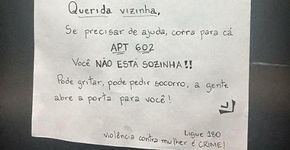 Querida vizinha,
Se precisar de ajuda, corra para cá
APT 602
Você NÃO ESTA SOZINHA!!
Pode gritar, pode pedir socorro, a gente
abre a porta para você!
Ligue 180
violência contra mulher é CRIME!